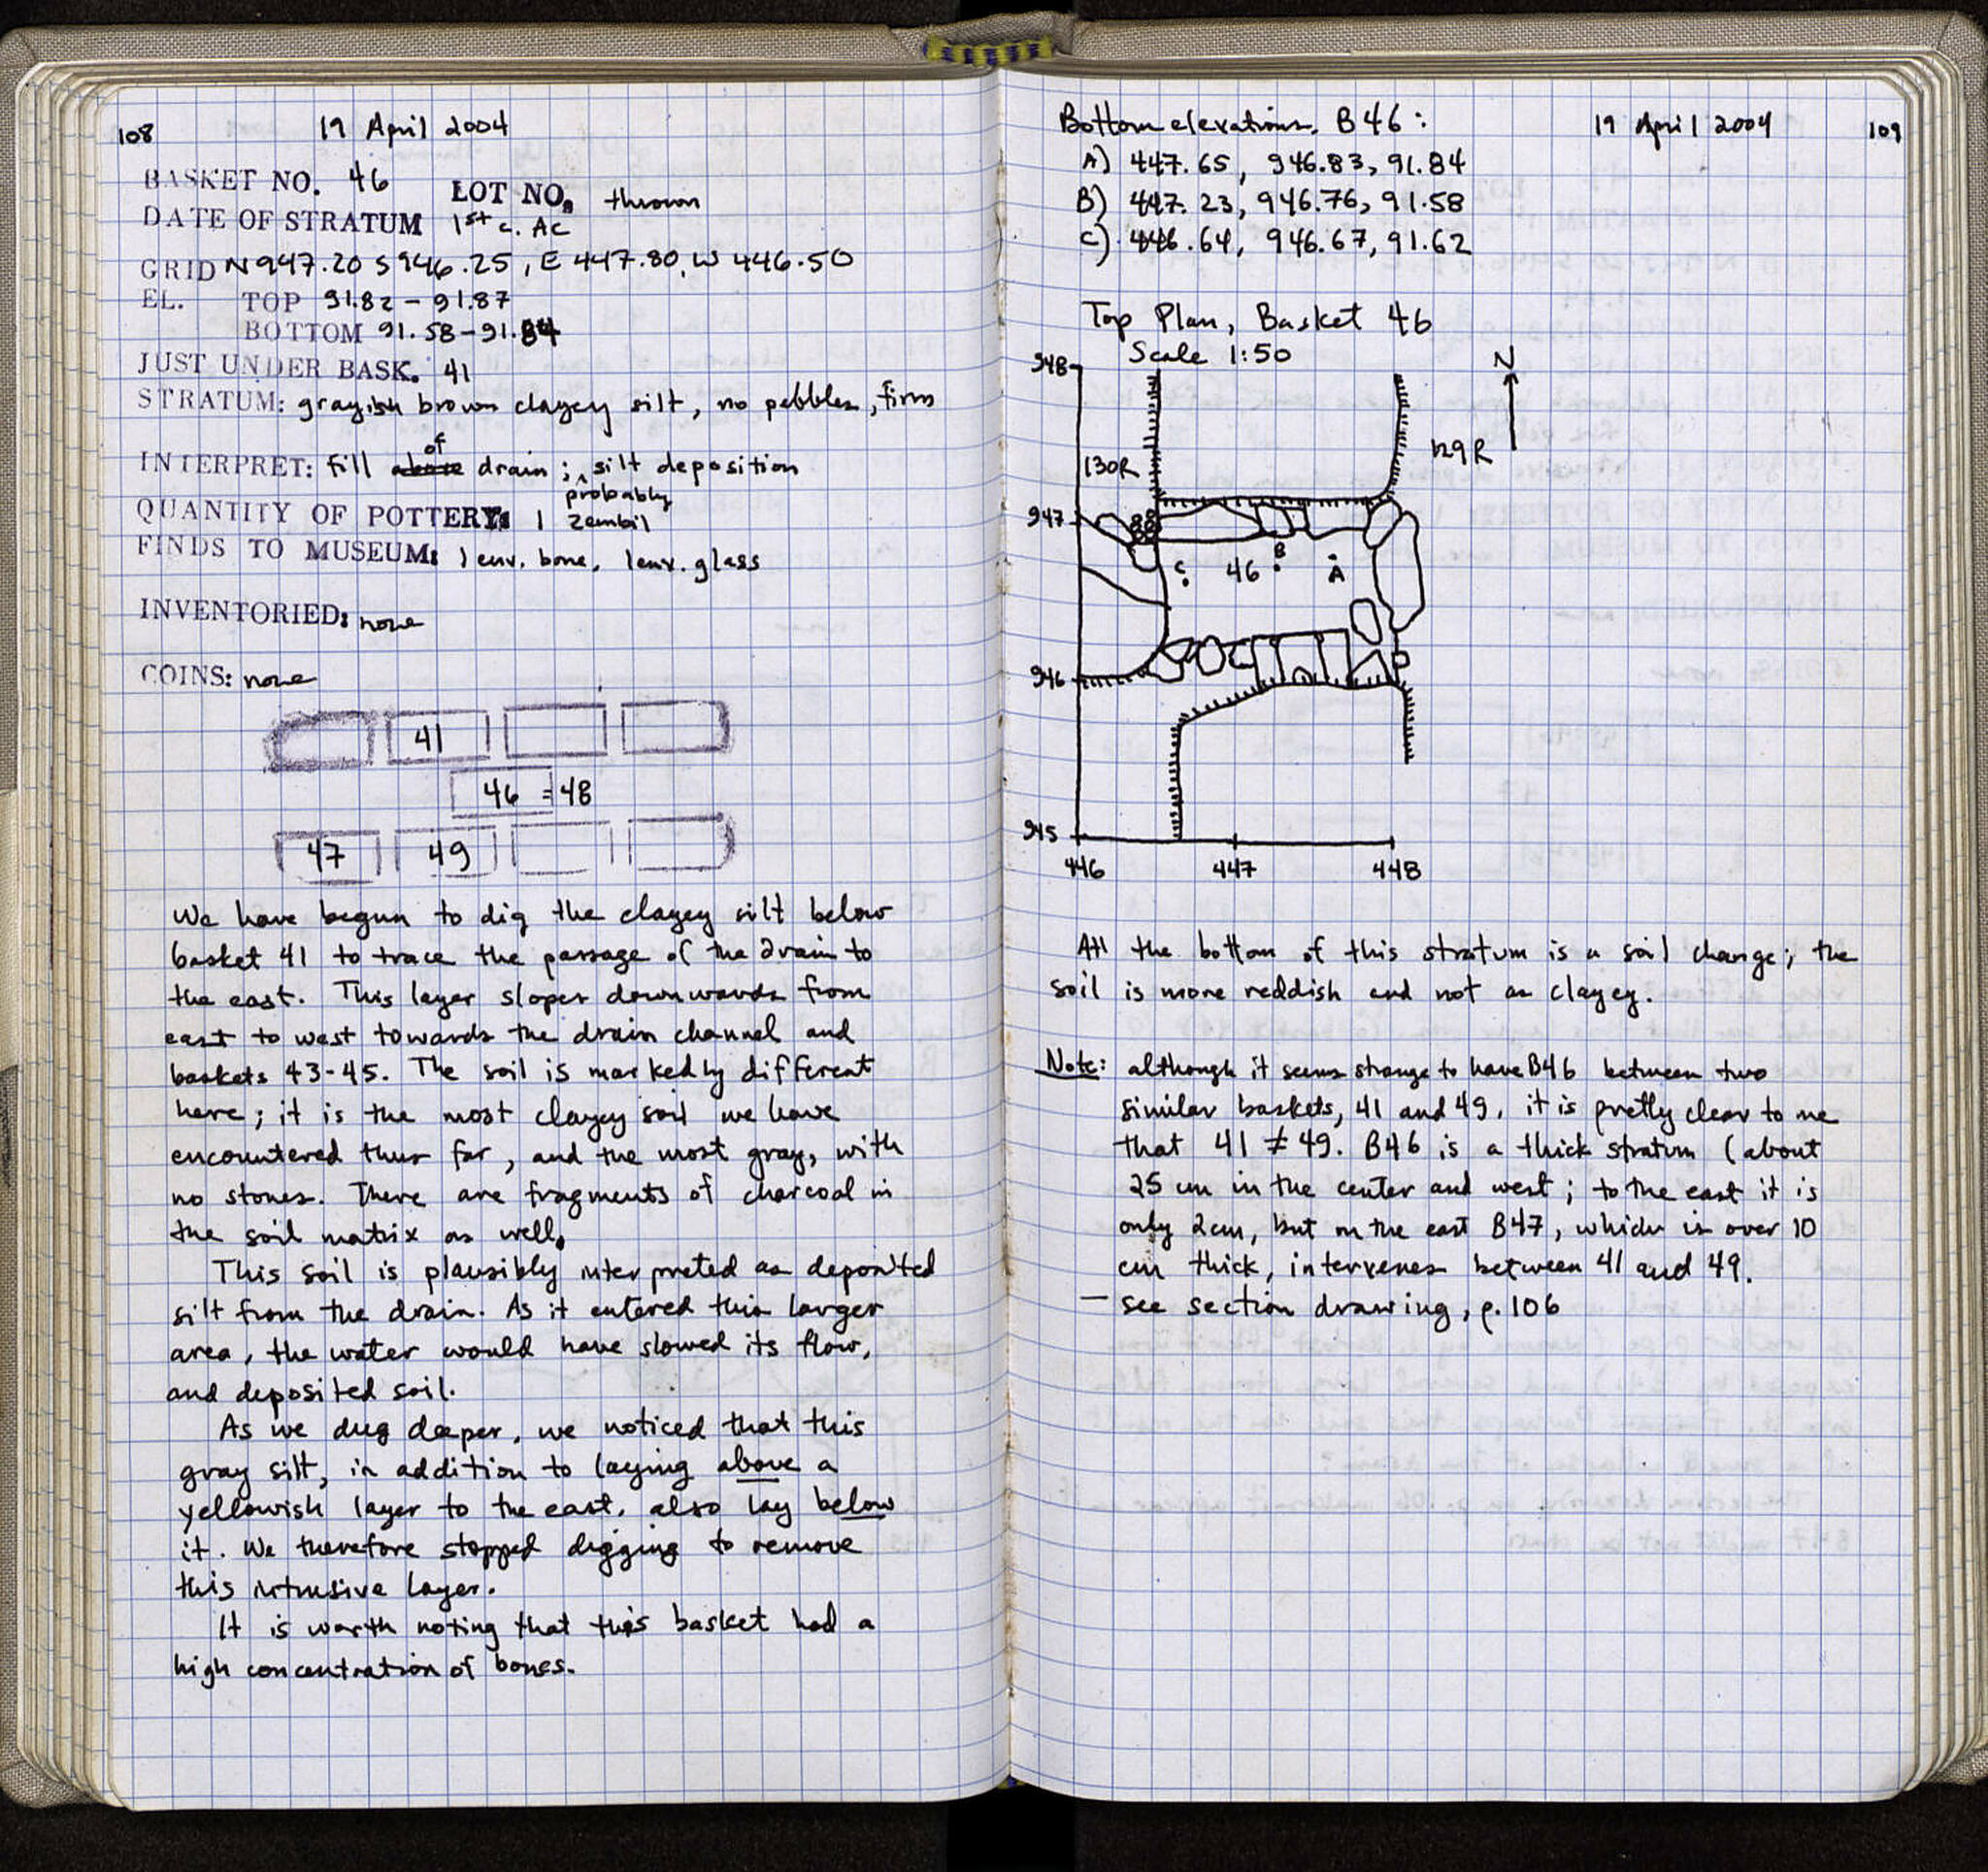 108
19 April 2004
BASKET NO. 46 LOT NO. thrown
DATE OF STRATUM 1st c. AC
GRID N947.20 S946.25, E447.80, W446.50
EL. TOP 91.82 - 91.87
BOTTOM 91.58-91.84
JUST UNDER BASK. 41
STRATUM: grayish brown clayey silt, no pebbles, firm
INTERPRET: fill above of drain; probably silt deposition
QUANTITY OF POTTERY: 1 zembil
FINDS TO MUSEUM: 1 env. bone, 1 env. glass
INVENTORIED: none
COINS: none
41
46 = 48
47 49
We have begun to dig the clayey silt below
basket 41 to trace the passage of the drain to
the east. This layer slopes downwards from
east to west towards the drain channel and
baskets 43-45. The soil is markedly different
here; it is the most clayey soil we have
encountered thus far, and the most gray, with
no stones. There are fragments of charcoal in
the soil matrix as well.
This soil is plausibly interpreted as deposited
silt from the drain. As it entered this larger
area, the water would have slowed its flow,
and deposited soil.
As we dug deeper, we noticed that this
gray silt, in addition to laying above a
yellowish layer to the east, also lay below
it. We therefore stopped digging to remove
this intrusive layer.
It is worth noting that this basket had a
high concentration of bones.
Bottom elevations, B46:
19 April 2004
109
A) 447.65, 946.83, 91.84
B) 447.23, 946.76, 91.58
C) 446.64, 946.67, 91.62
Top Plan, Basket 46
Scale 1:50
N
948
130R
129R
947
B
C 46 A
946
945
446 447 448
At the bottom of this stratum is a soil change; the
soil is more reddish and not as clayey.
Note: although it seems strange to have B46 between two
similar baskets, 41 and 49, it is pretty clear to me
that 41 ≠ 49. B46 is a thick stratum (about
25 cm in the center and west; to the east it is
only 2cm, but on the east B47, which is over 10
cm thick, intervenes between 41 and 49.
— see section drawing, p. 106